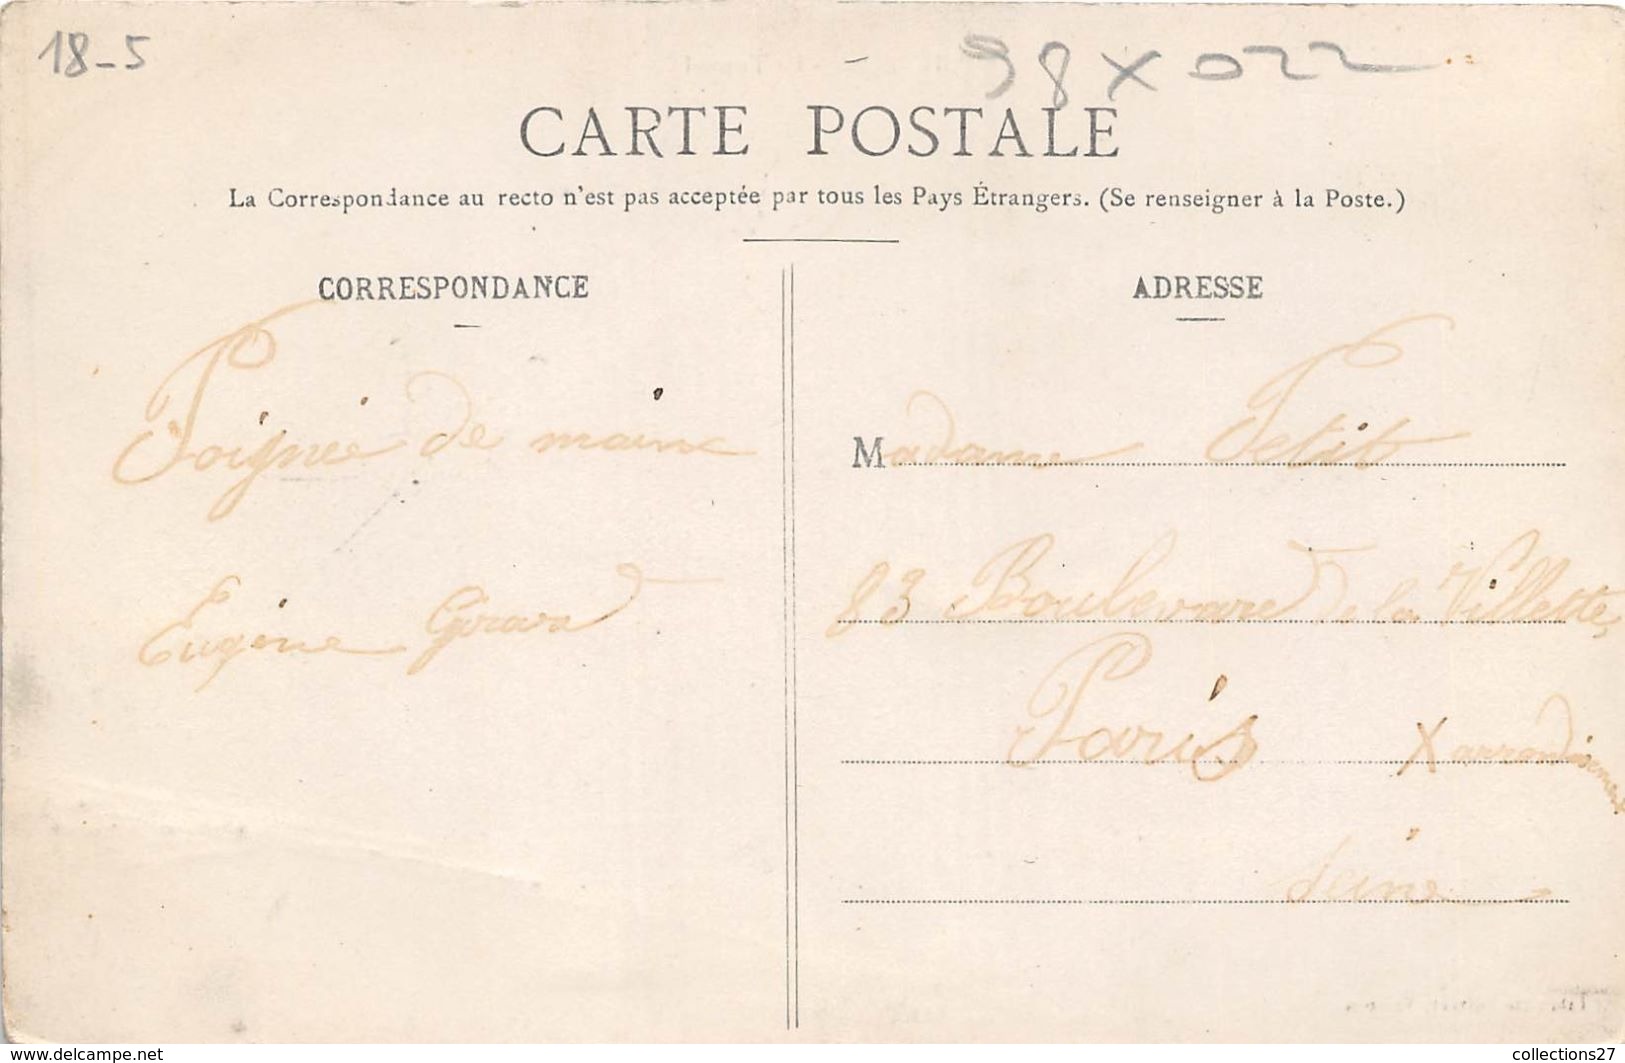 18-5
98 X 022
CARTE POSTALE
La Correspondance au recto n'est pas acceptée par tous les Pays Étrangers. (Se renseigner à la Poste.)
CORRESPONDANCE
Poignée de mains
Eugène Girard
ADRESSE
Madame Petit
83 Boulevard de la Villette,
Paris X arrondissement
Seine
www.delcampe.net
collections27